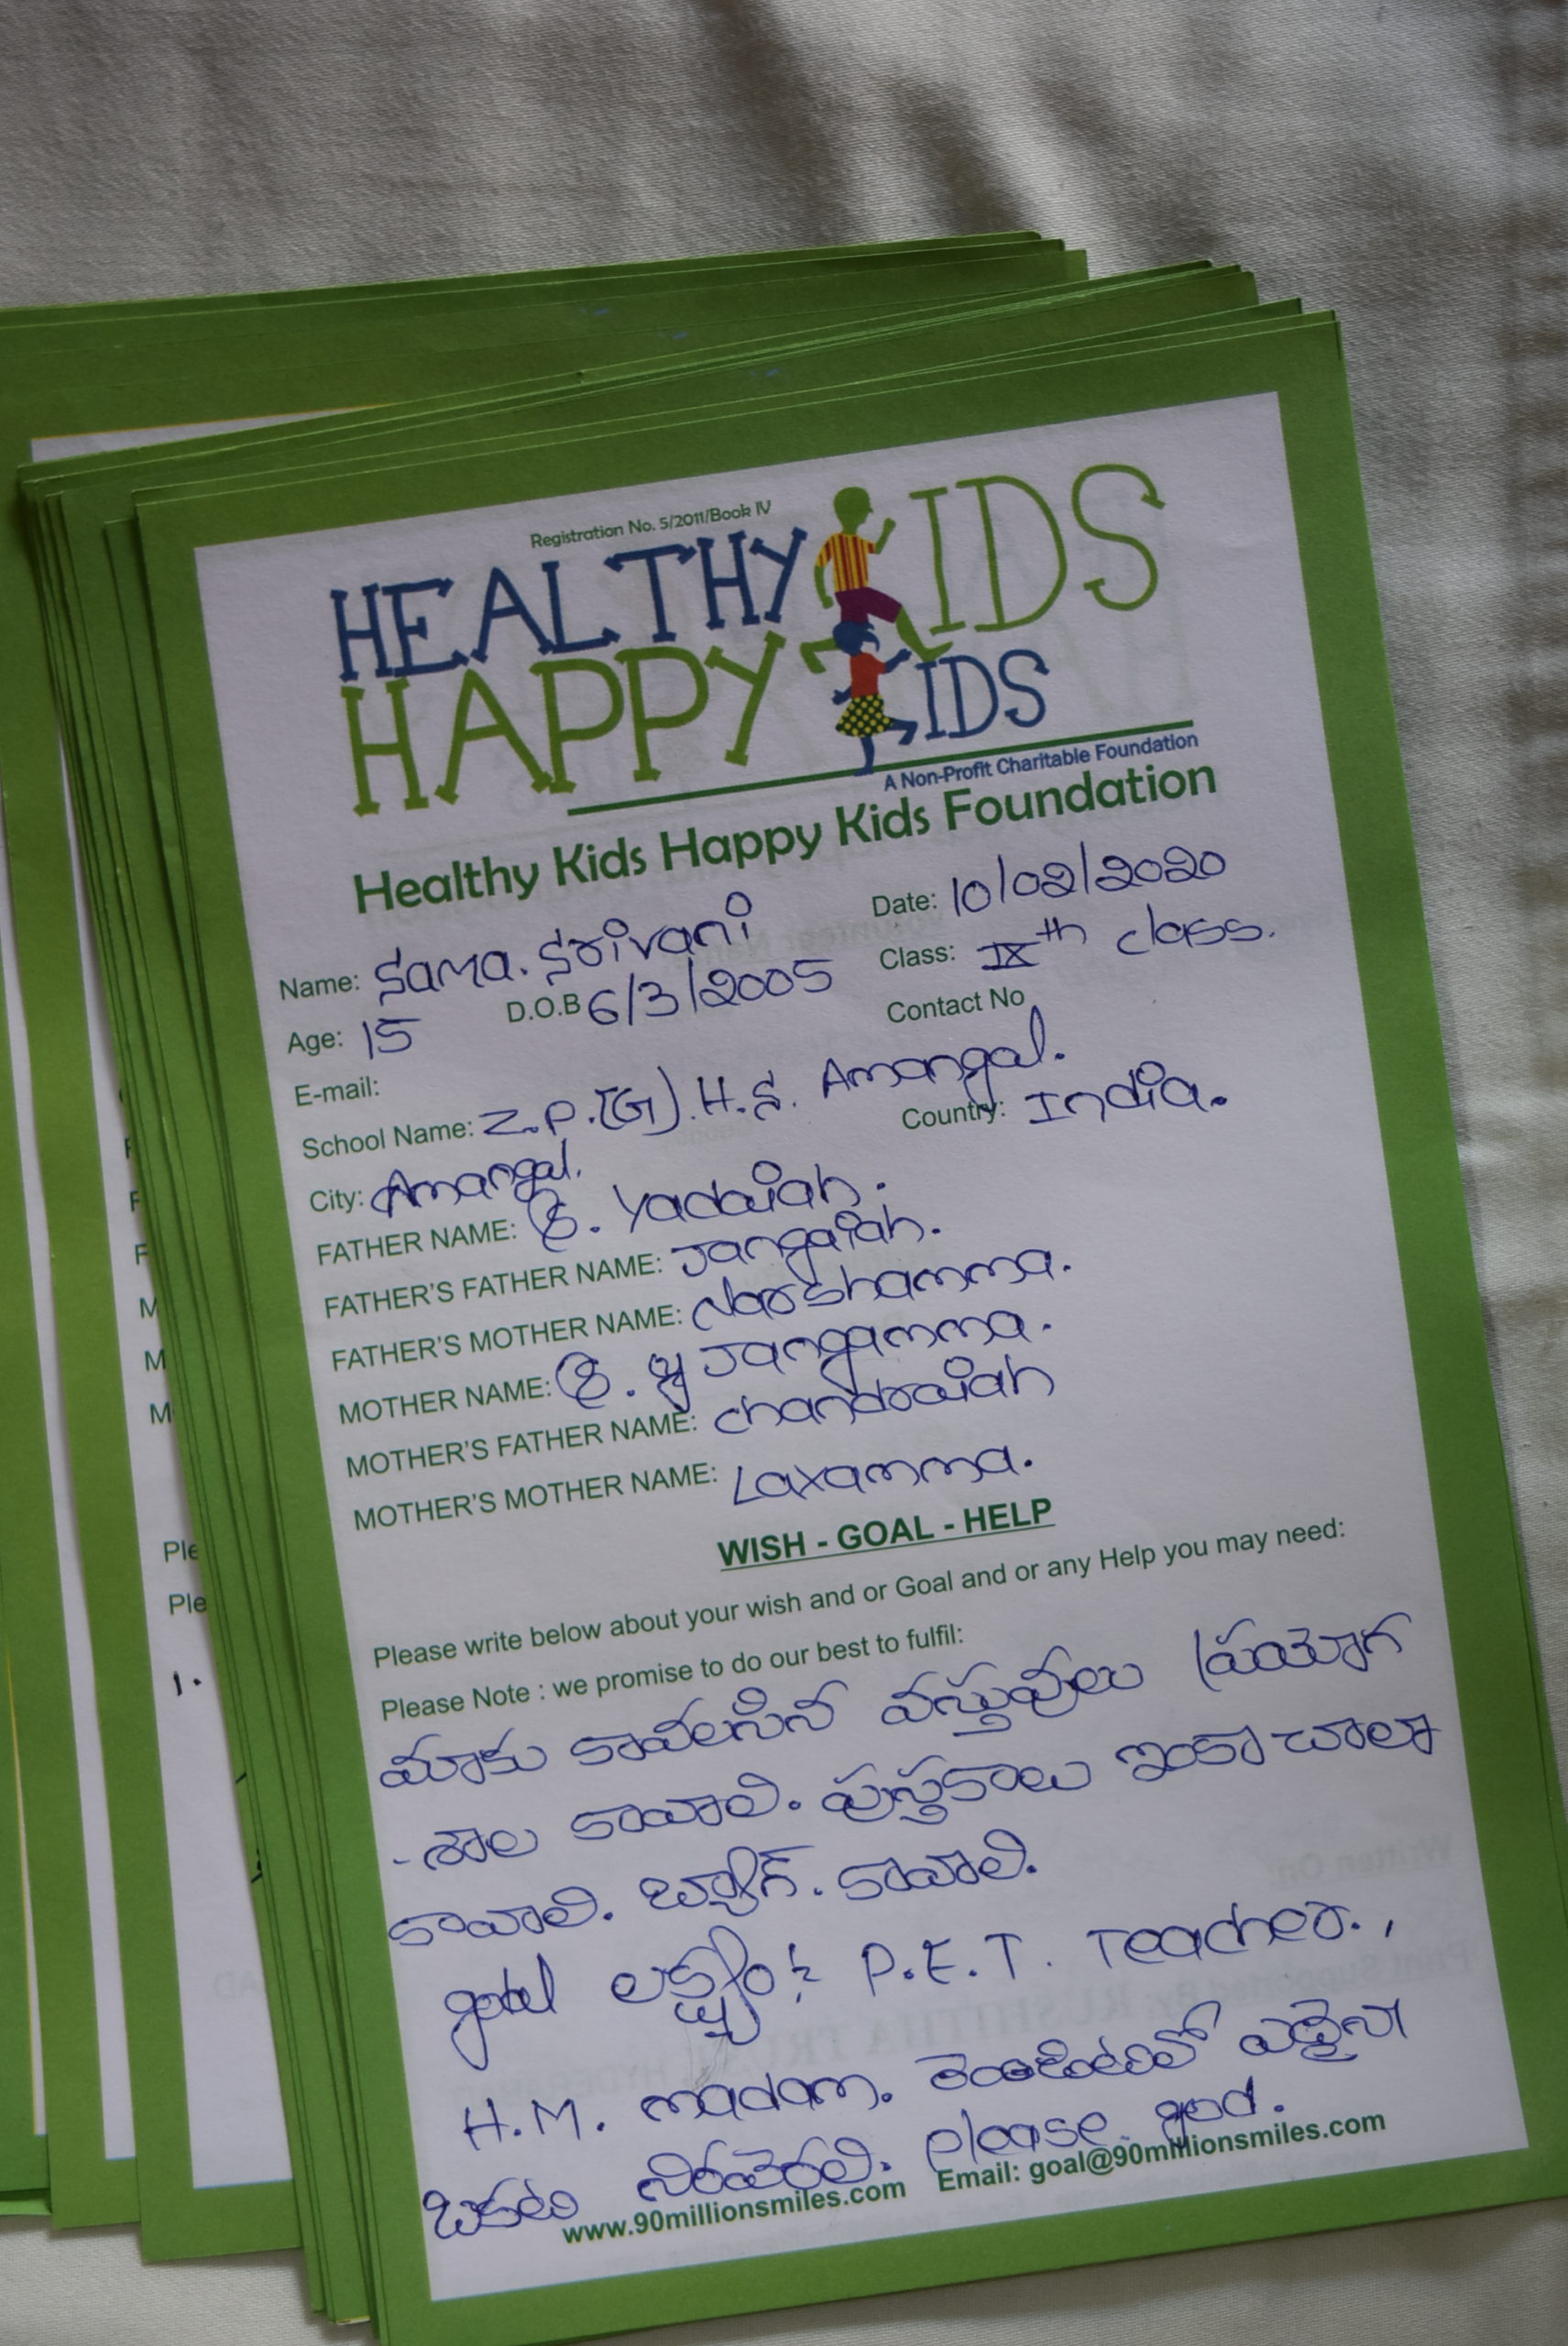 Registration No. 5/2011/Book IV
HEALTHY KIDS
HAPPY KIDS
A Non-Profit Charitable Foundation
Healthy Kids Happy Kids Foundation
Name: Sama. Srivani Date: 10/02/2020
Age: 15 D.O.B 6/3/2005 Class: IXth class.
E-mail: Contact No
School Name: Z.P.(G).H.S. Amangal.
City: Amangal. Country: India.
FATHER NAME: S. Yadaiah.
FATHER'S FATHER NAME: Jangaiah.
FATHER'S MOTHER NAME: Narshamma.
MOTHER NAME: S. Jangamma.
MOTHER'S FATHER NAME: chandraiah
MOTHER'S MOTHER NAME: Laxamma.
WISH - GOAL - HELP
Please write below about your wish and or Goal and or any Help you may need:
Please Note : we promise to do our best to fulfil:
మాకు కావలసిన వస్తువులు ప్రయోగ
-శాల కావాలి. పుస్తకాలు ఇంకా చాలా
కావాలి. బ్యాగ్. కావాలి.
goal లక్ష్యం: P.E.T. Teacher.,
H.M. madam. రెండింటిలో ఏదైనా
ఒకటి నెరవేరాలి. please god.
www.90millionsmiles.com Email: goal@90millionsmiles.com
Ple
Ple
1.